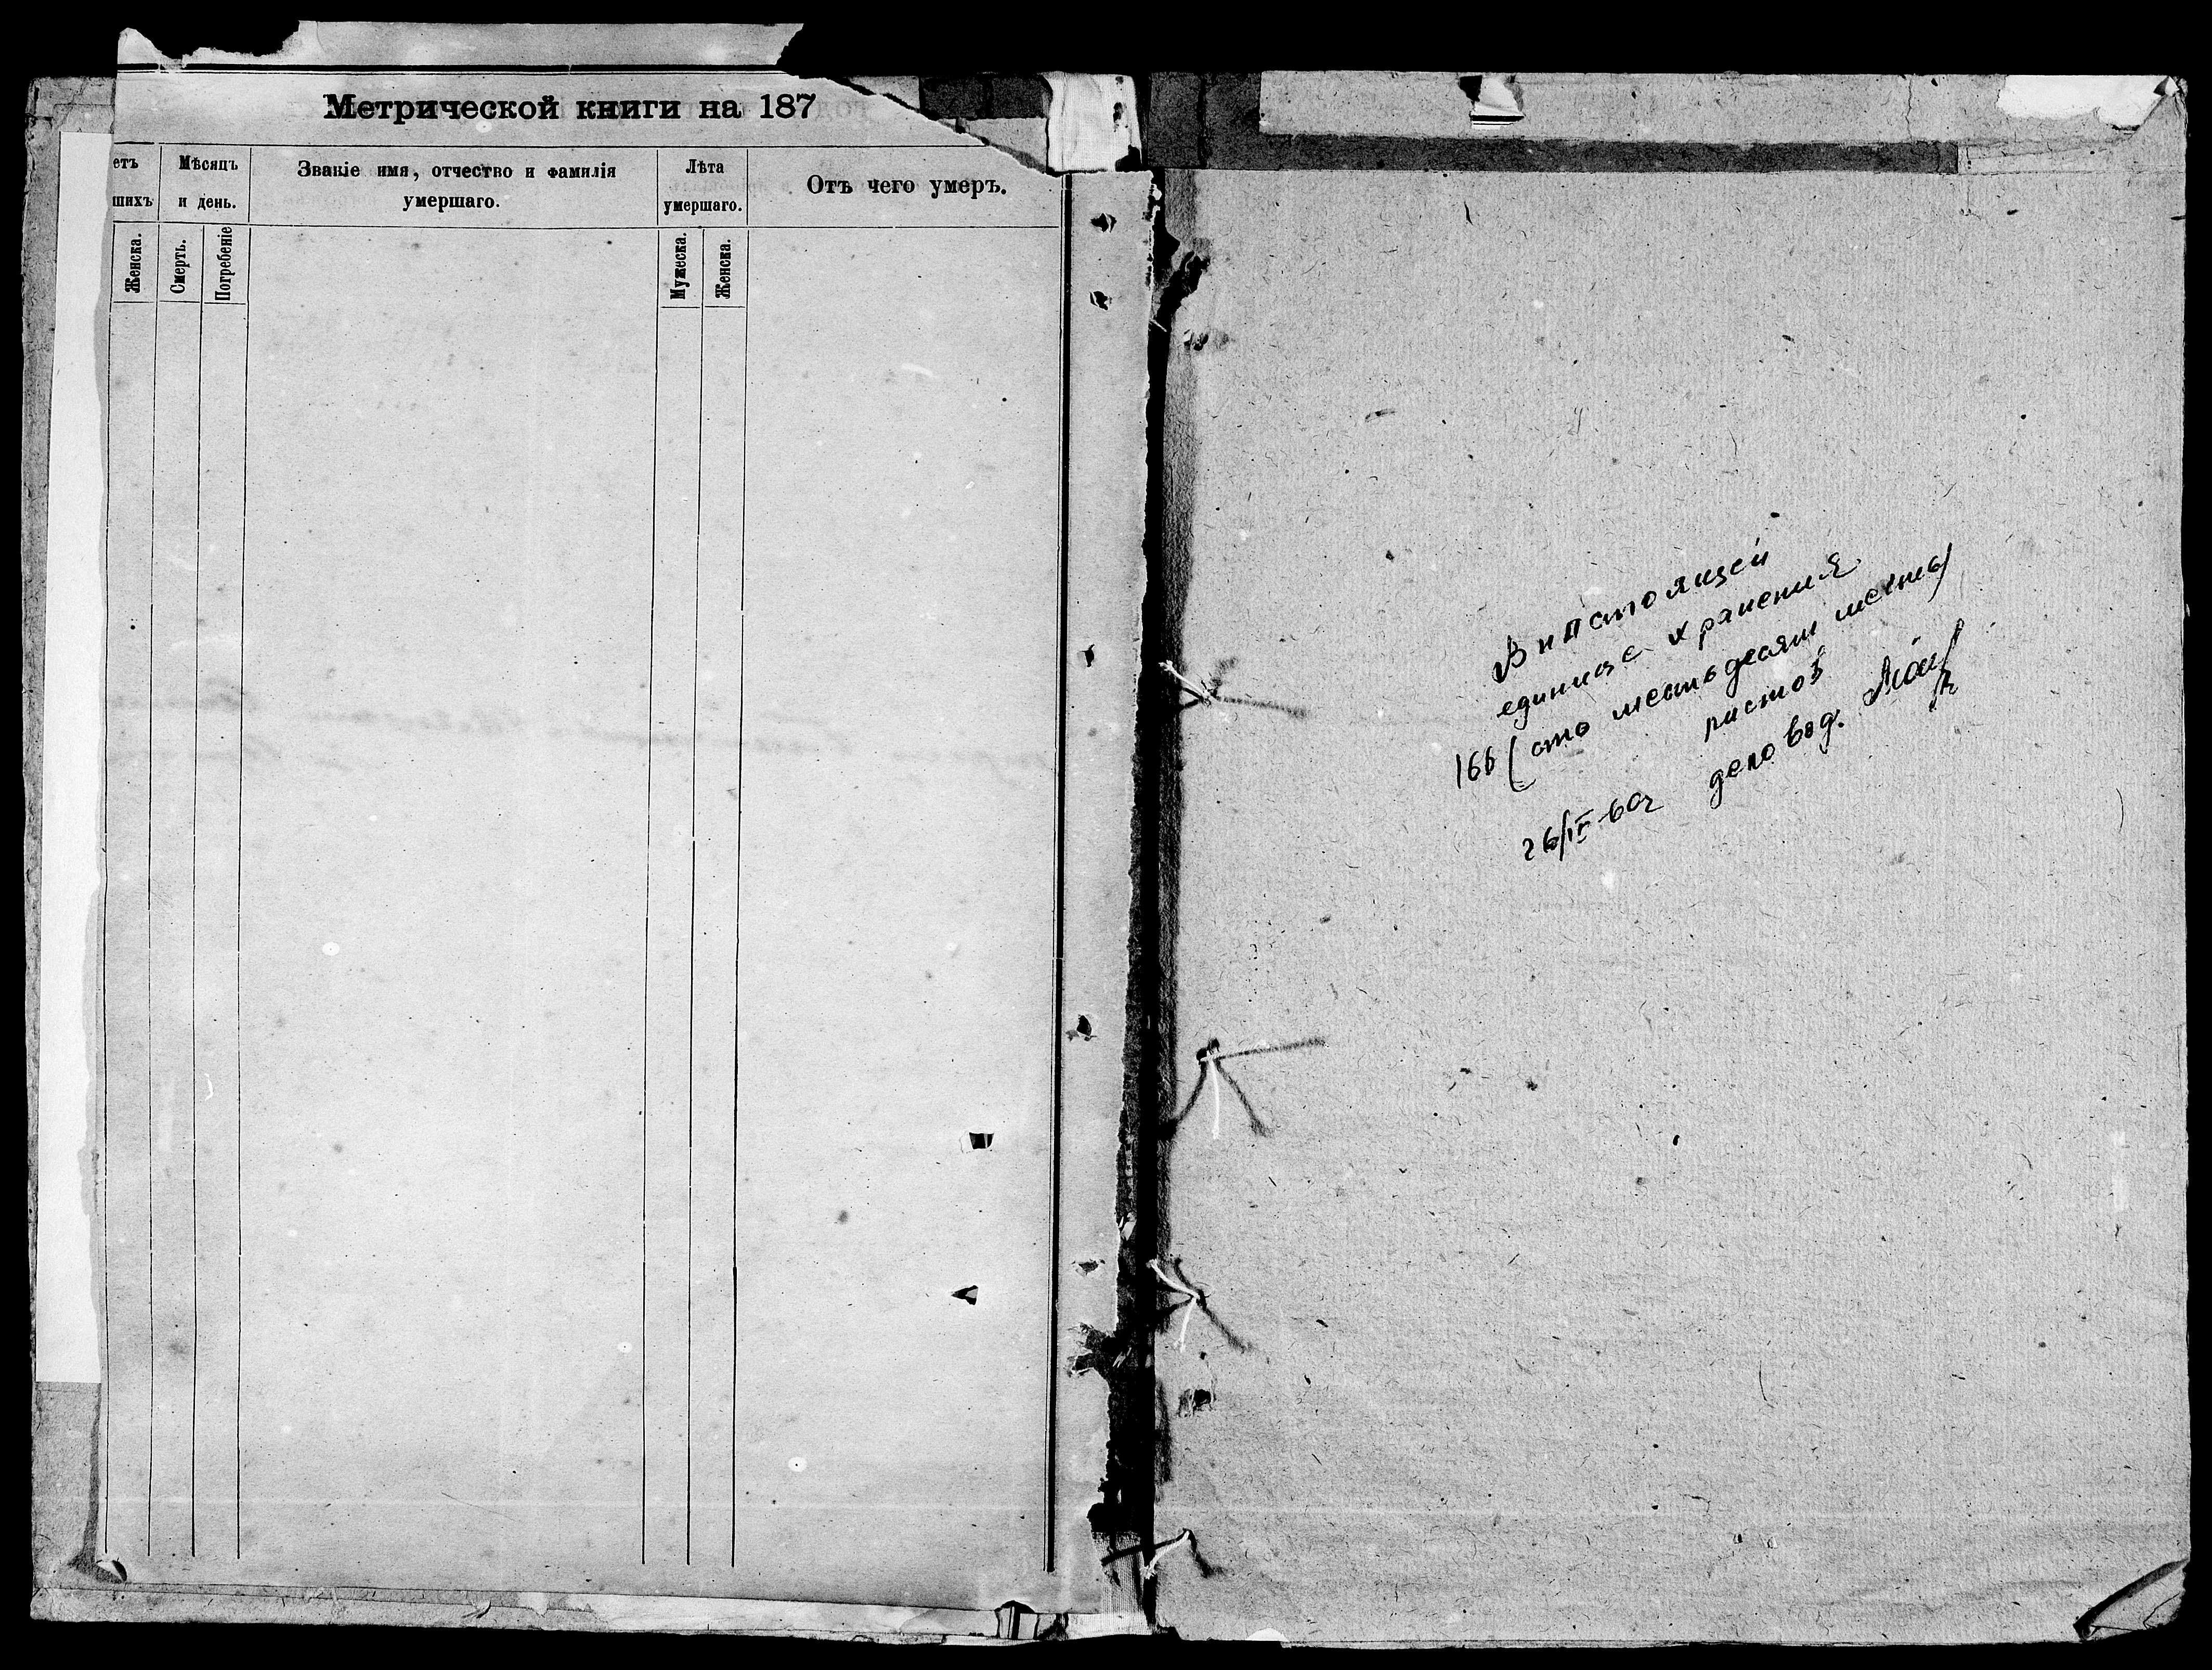 Метрической книги на 187
етъ
шихъ
Мѣсяцъ
и день.
Званіе имя, отчество и фамилія
умершаго.
Лѣта
умершаго.
Отъ чего умеръ.
Женска.
Смерть.
Погребеніе
Мужеска.
Женска.
В настоящей
единице хранения
166 (сто шестьдесят шесть)
листов
26/IV-60г деловод.